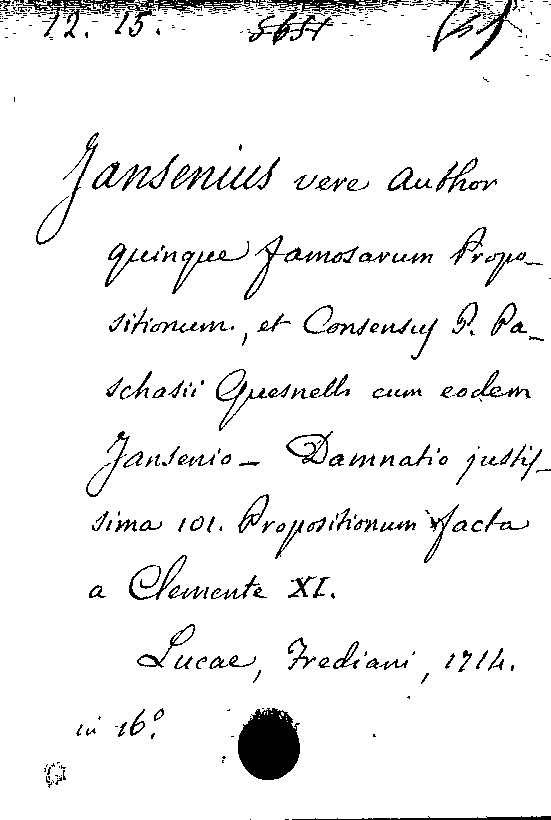 12. 15.
Jansenius vere Author
quinque famosarum Propo_
sitionum., et Consensus P. Pa_
schasii Quesnelli cum eodem
Jansenio_ Damnatio justis_
sima 101. Propositionum facta
a Clemente XI.
Lucae, Frediani, 1714.
in 16º.